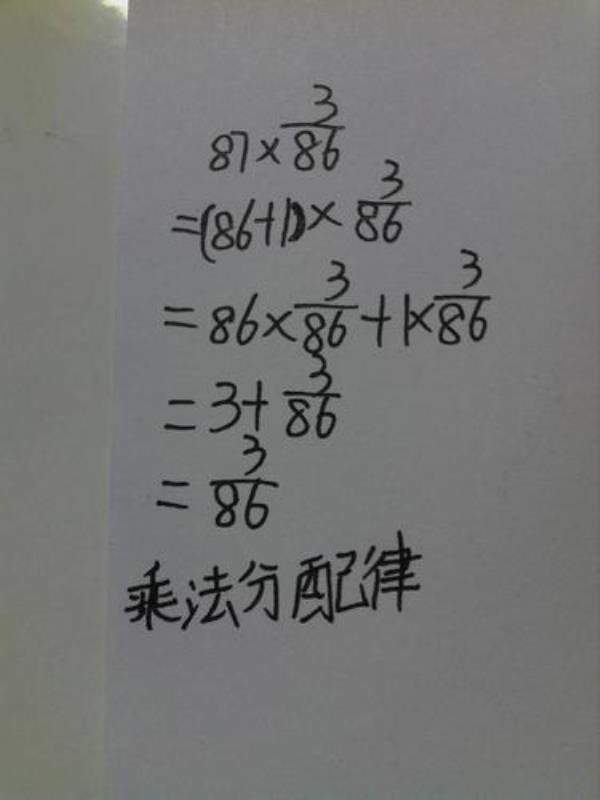 87×3/86
=(86+1)×3/86
=86×3/86+1×3/86
=3+3/86
=3/86
乘法分配律